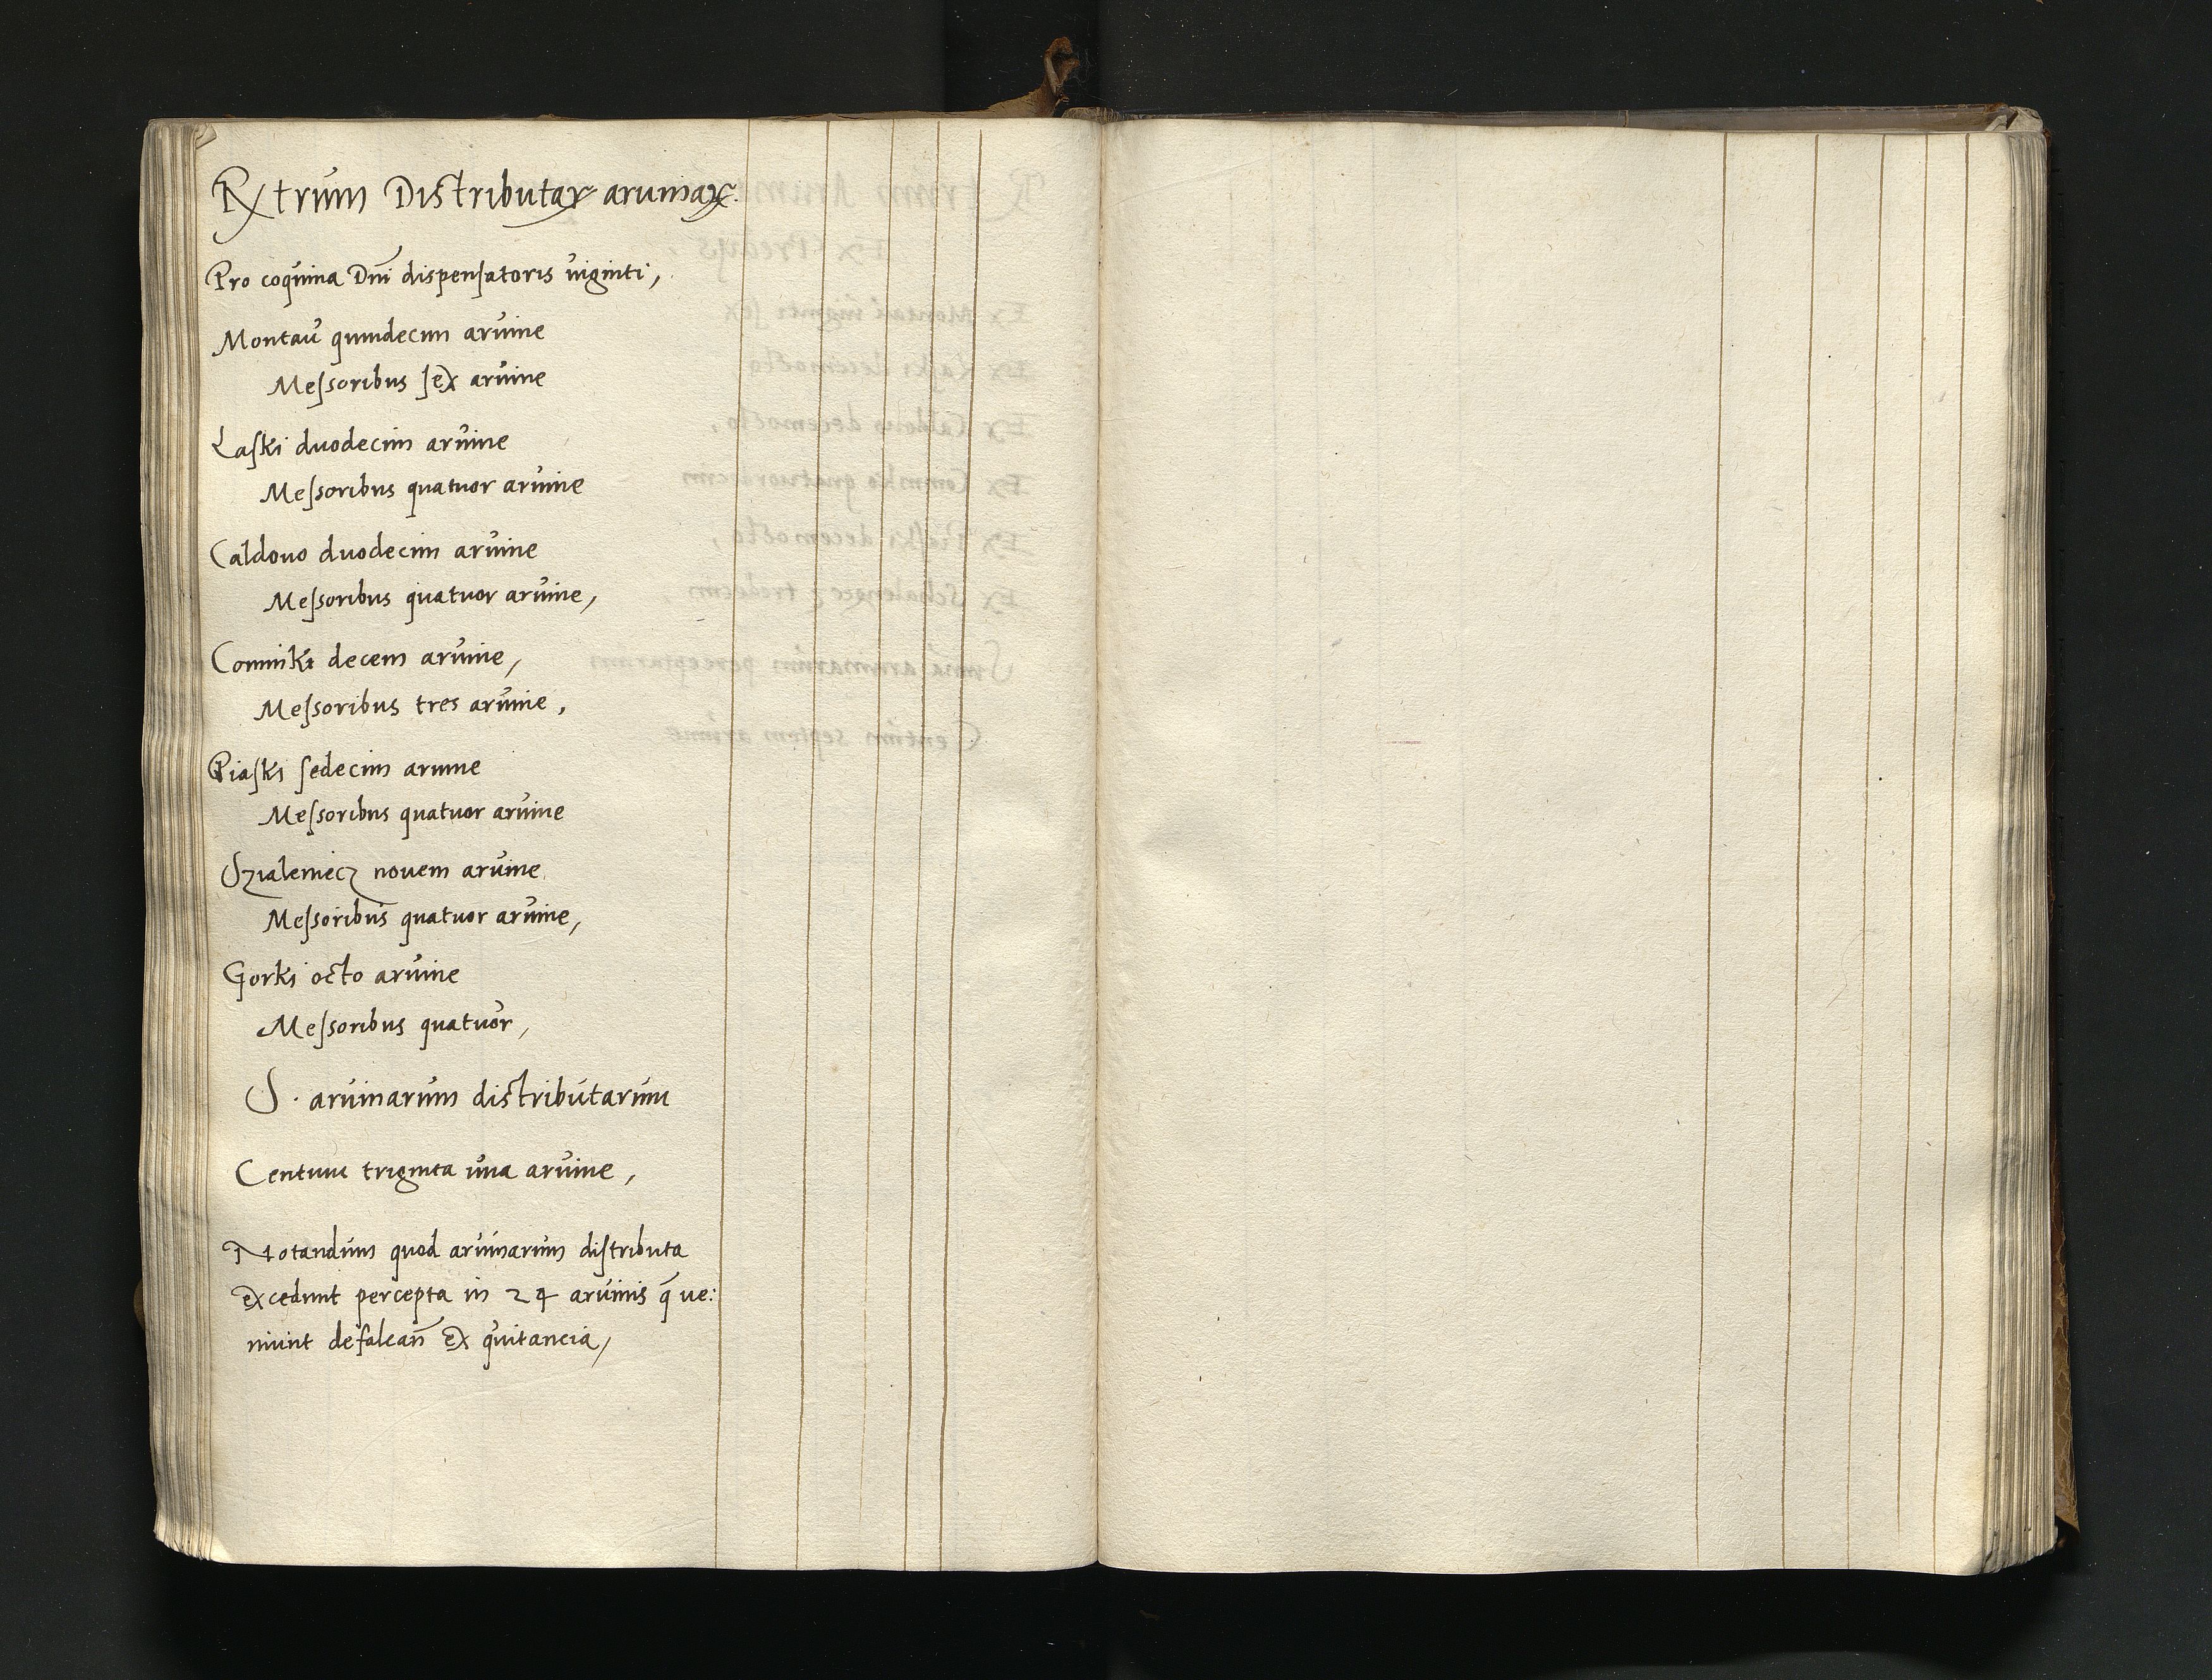 Rxtrum Distributaꝝ aruinaꝝ.
Pro coquina Dnī dispenſatoris viginti,
Montau quindecim aruine
Meſsoribus ſex aruine
Laſki duodecim aruine
Meſsoribus quatuor aruine
Caldouo duodecim aruine
Meſsoribus quatuor aruine,
Comniki decem aruine,
Meſsoribus tres aruine,
Piaſki ſedecim aruine
Meſsoribus quatuor aruine
Szialeniecz nouem aruine
Meſsoribus quatuor aruine,
Gorki octo aruine
Meſsoribus quatuor,
S. aruinarum distributarum
Centum triginta una aruine,
Notandum quod aruinarum diſtributa
excedunt percepta in 24 aruinis q̄ ue:
niunt defalcan̄ ex quitancia,